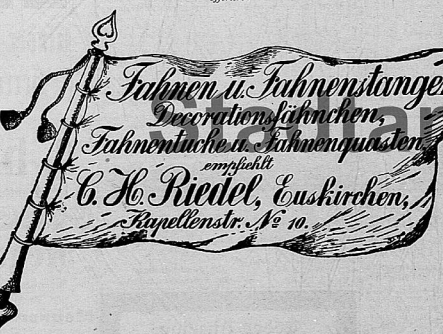 Fahnen u. Fahnenstangen
Decorationsfähnchen,
Fahnentuche u. Fahnenquasten,
empfiehlt
C. H. Riedel, Euskirchen,
Kapellenstr. No 10.